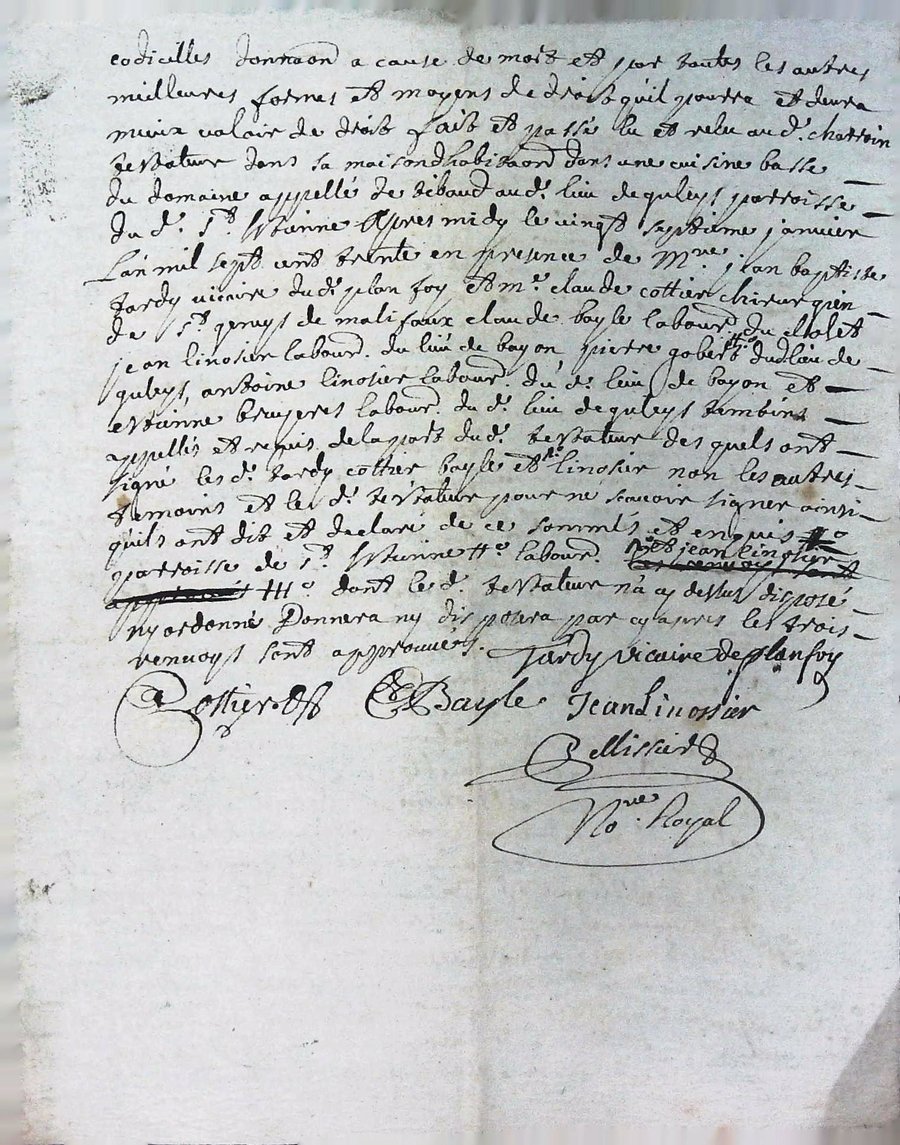 codicilles donnaon a cause de mort et par toutes les autres
meilleures formes et moyens de droit quil pourra et devra
mieux valoir de droit fait et passé lu et relu aud. chattoin
testateur dans sa maison dhabitaon dans une cuisine basse
du domaine appellé de tibaud aud. lieu de guleys parroisse
du d. st. Etienne apres midy le vingt septieme janvier
Lan mil sept cent trente en presence de Mre. jean baptiste
tardy vicaire dud. planfoy et mr. claude cottier chirurgien
de st. genuys de malifaux claude bayle labour. du
jean linosier labour. du lieu de bayon pierre gobert dud. lieu de
guleys, antoine linosier labour. du d. lieu de bayon et
estienne bruyeres labour. du d. lieu de guleys tesmoins
appellés et requis de la part dud. testateur des quels ont
signé les d. tardy cottier bayle et linosier non les autres
temoins et le d. testateur pour ne scavoir signer ainsi
quils ont dit et declaré de ce sommés et enquis #o
parroisse de st. Etienne #o labour. et jean linosier
#o dont le d. testateur n'a cy dessus disposé
ny ordonné Donnera ny disposera par cy apres les trois
renvoys sont approuvés. Tardy vicaire de planfoy
Cottier Bayle Jean Linossier
Pellissier
Nore. Royal